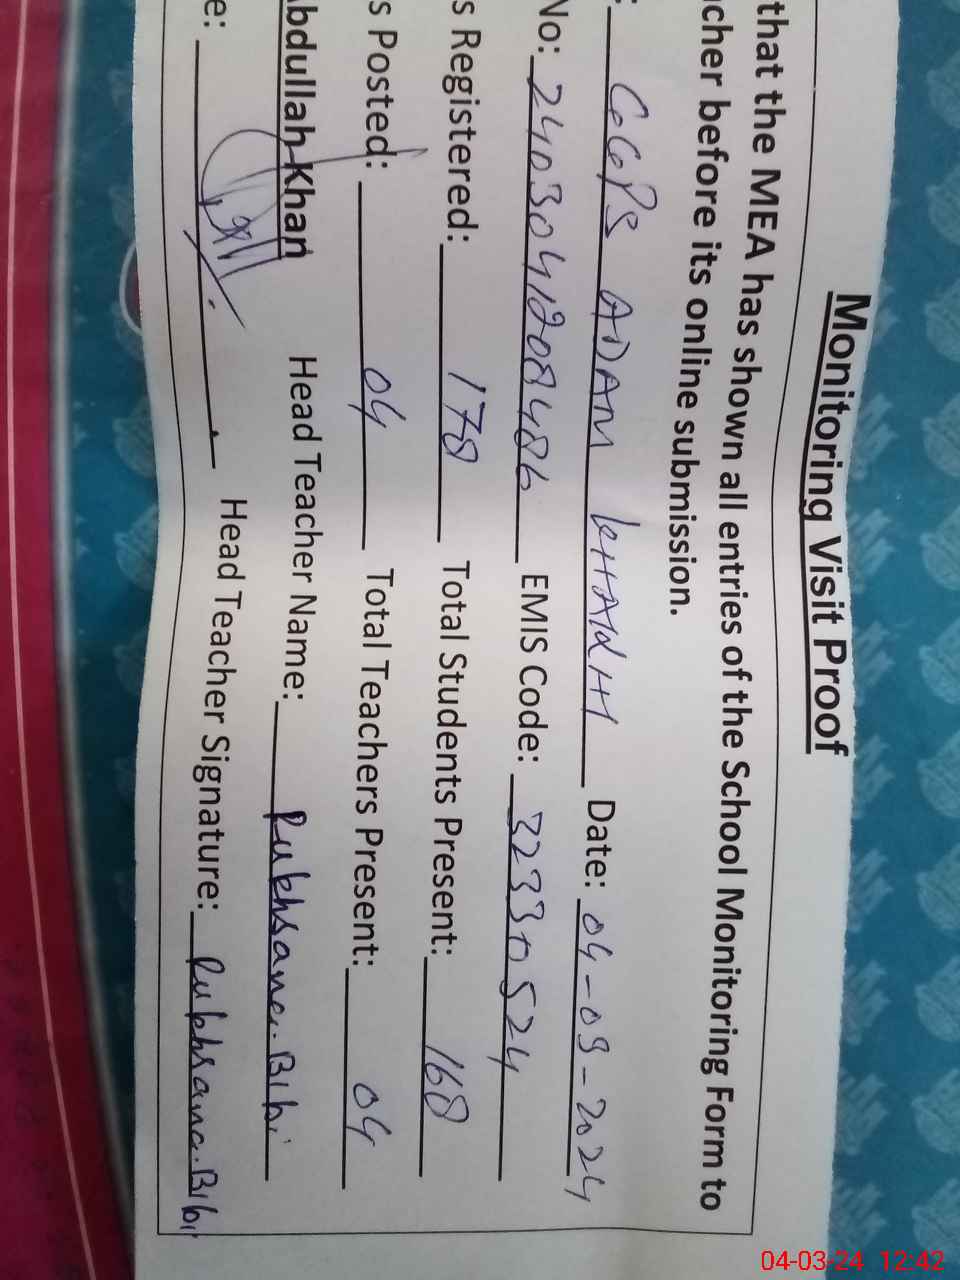 Monitoring Visit Proof
that the MEA has shown all entries of the School Monitoring Form to
cher before its online submission.
: GGPS ADAM KHAKH Date: 04-03-2024
No: 2403041208486 EMIS Code: 32330524
s Registered: 178 Total Students Present: 168
s Posted: 04 Total Teachers Present: 04
Abdullah Khan Head Teacher Name: Rukhsana.Bibi
e: Head Teacher Signature: Rukhsana.Bibi
04-03-24 12:42